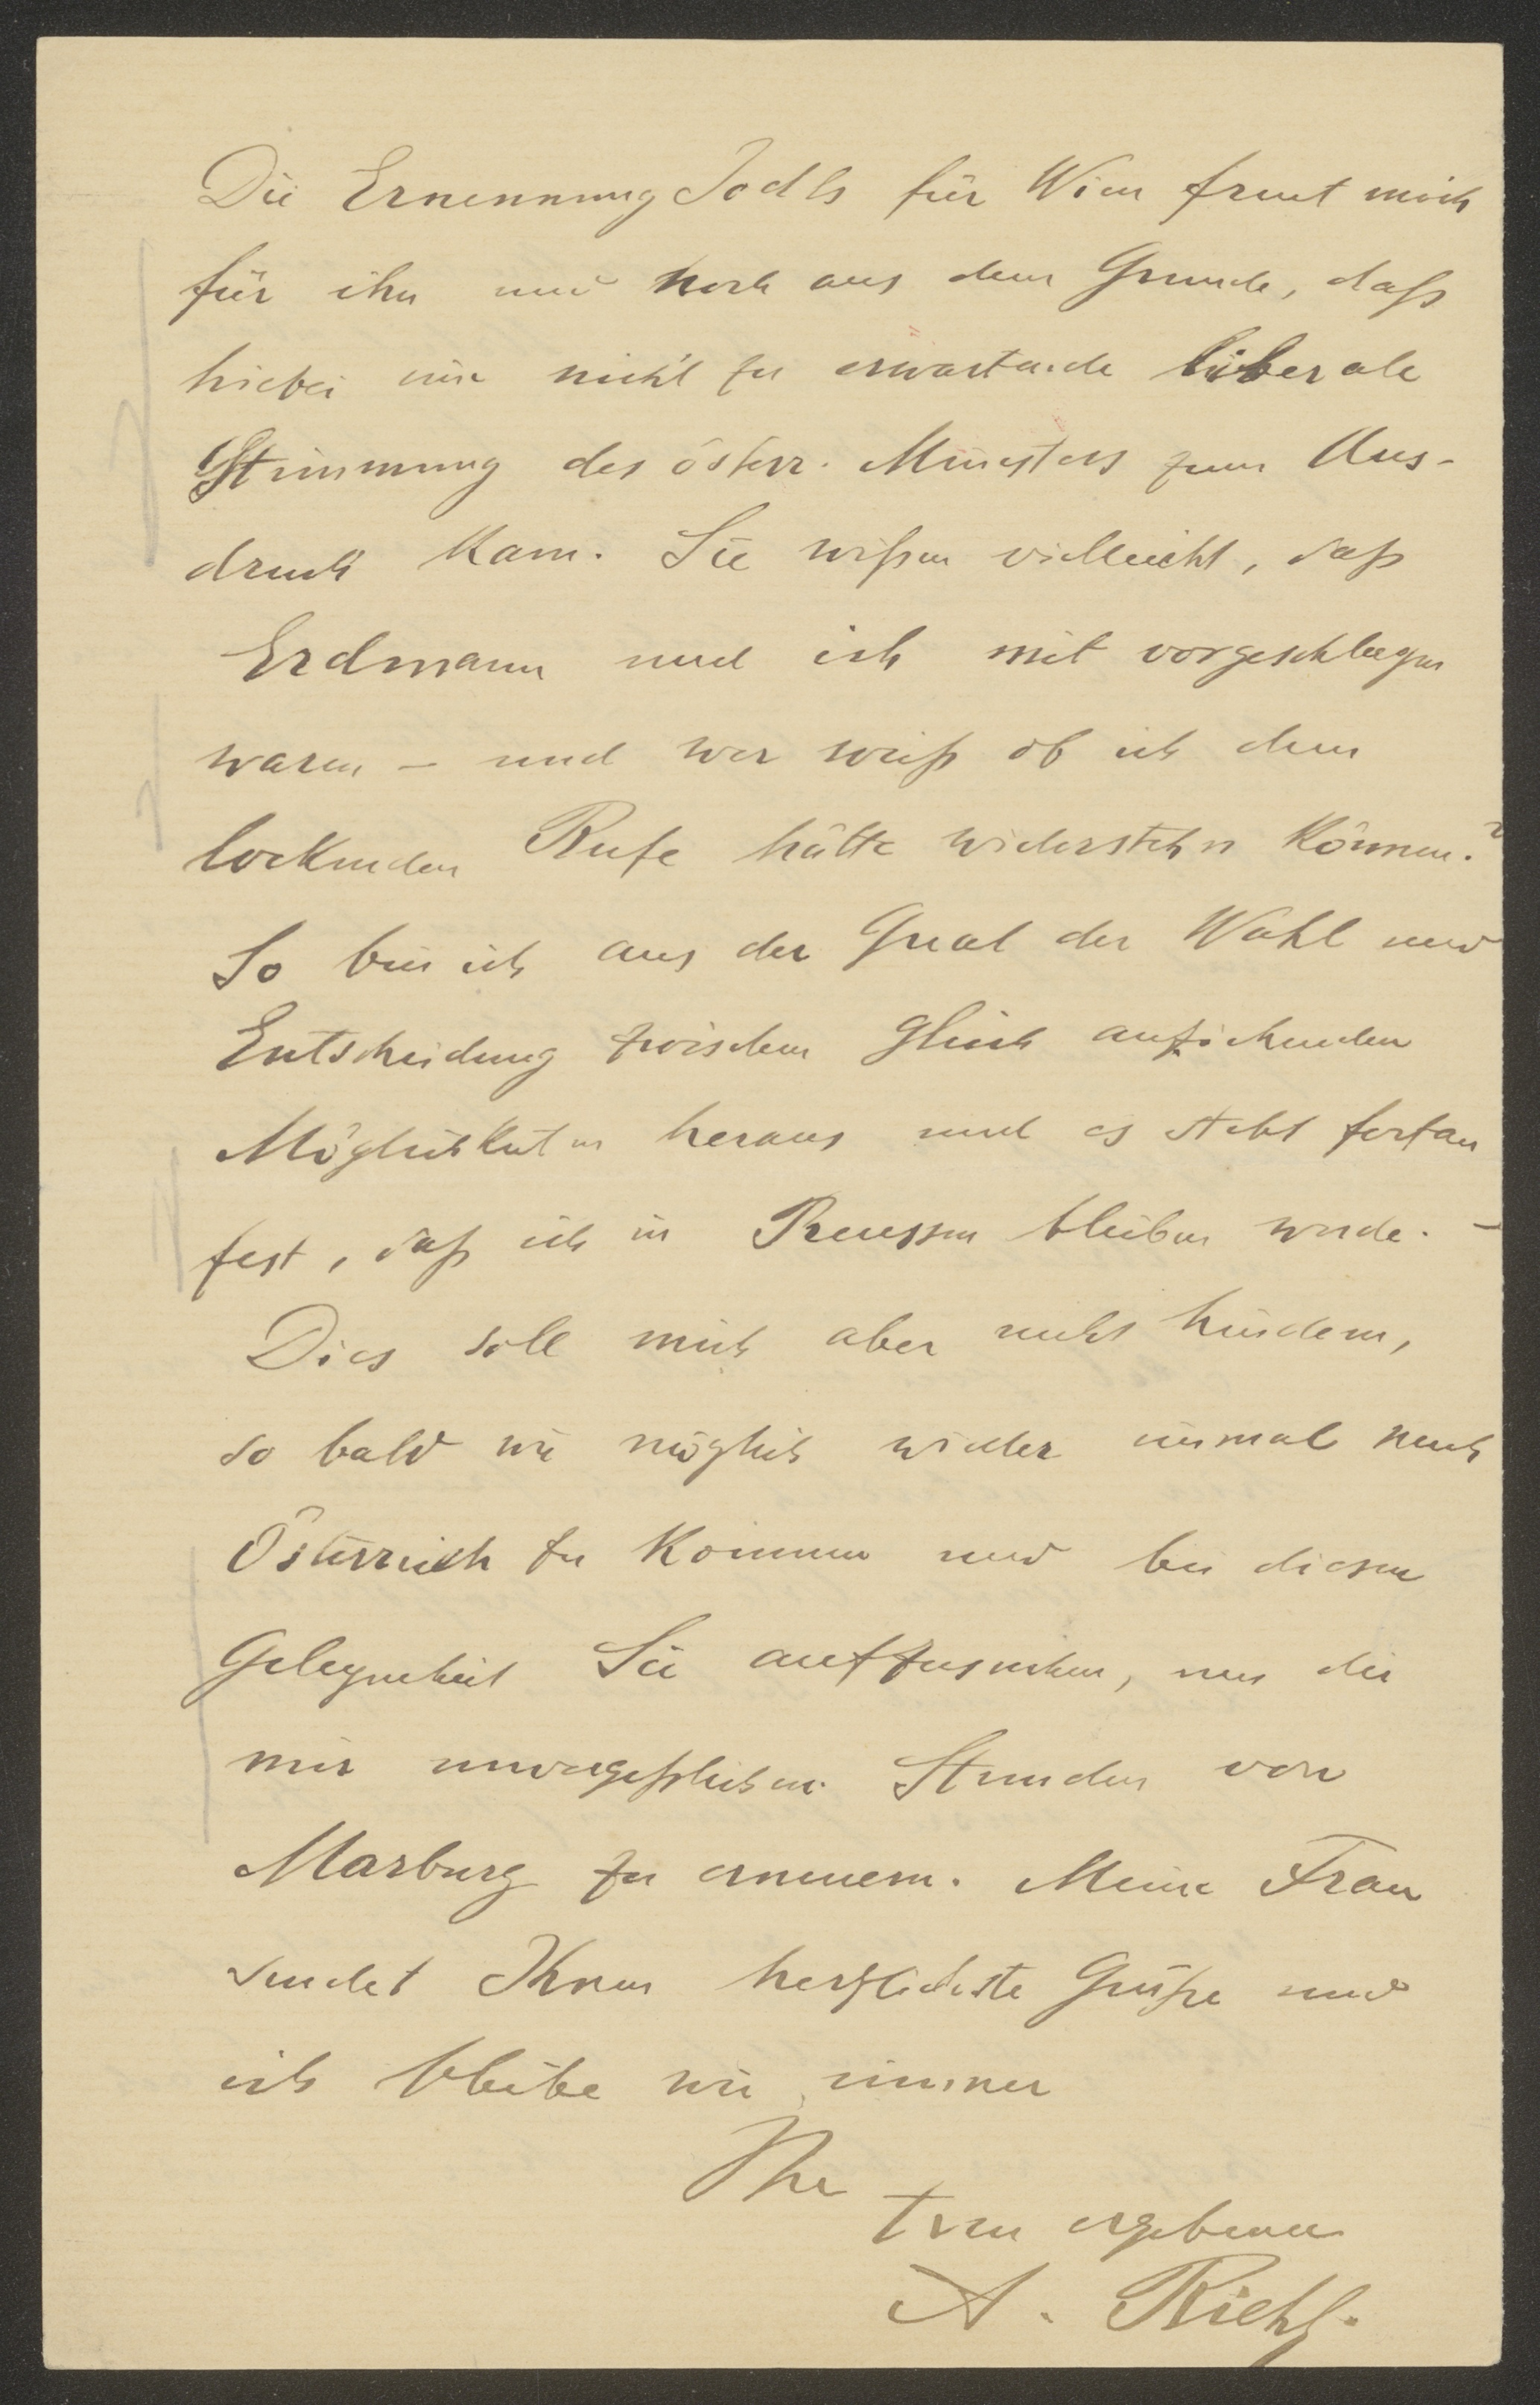 Die Ernennung Jodls für Wien freut mich
für ihn und noch aus dem Grunde, daß
hiebei eine nicht zu erwartende liberale
Stimmung des österr. Ministers zum Aus-
druck kam. Sie wißen vielleicht, daß
Erdmann und ich mit vorgeschlagen
waren – und wer weiß ob ich dem
lockenden Rufe hätte widerstehn können?
So bin ich aus der Qual der Wahl und
Entscheidung zwischen gleich anziehenden
Möglichkeiten heraus und es steht fortan
fest, daß ich in Preussen bleiben werde. –
Dies soll mich aber nicht hindern,
so bald wie möglich wieder einmal nach
Österreich zu kommen und bei dieser
Gelegenheit Sie aufzusuchen, um die
mir unvergeßlichen Stunden von
Marburg zu erneuern. Meine Frau
sendet Ihnen herzlichste Grüße und
ich bleibe wie immer
Ihr
treu ergebener
A. Riehl.